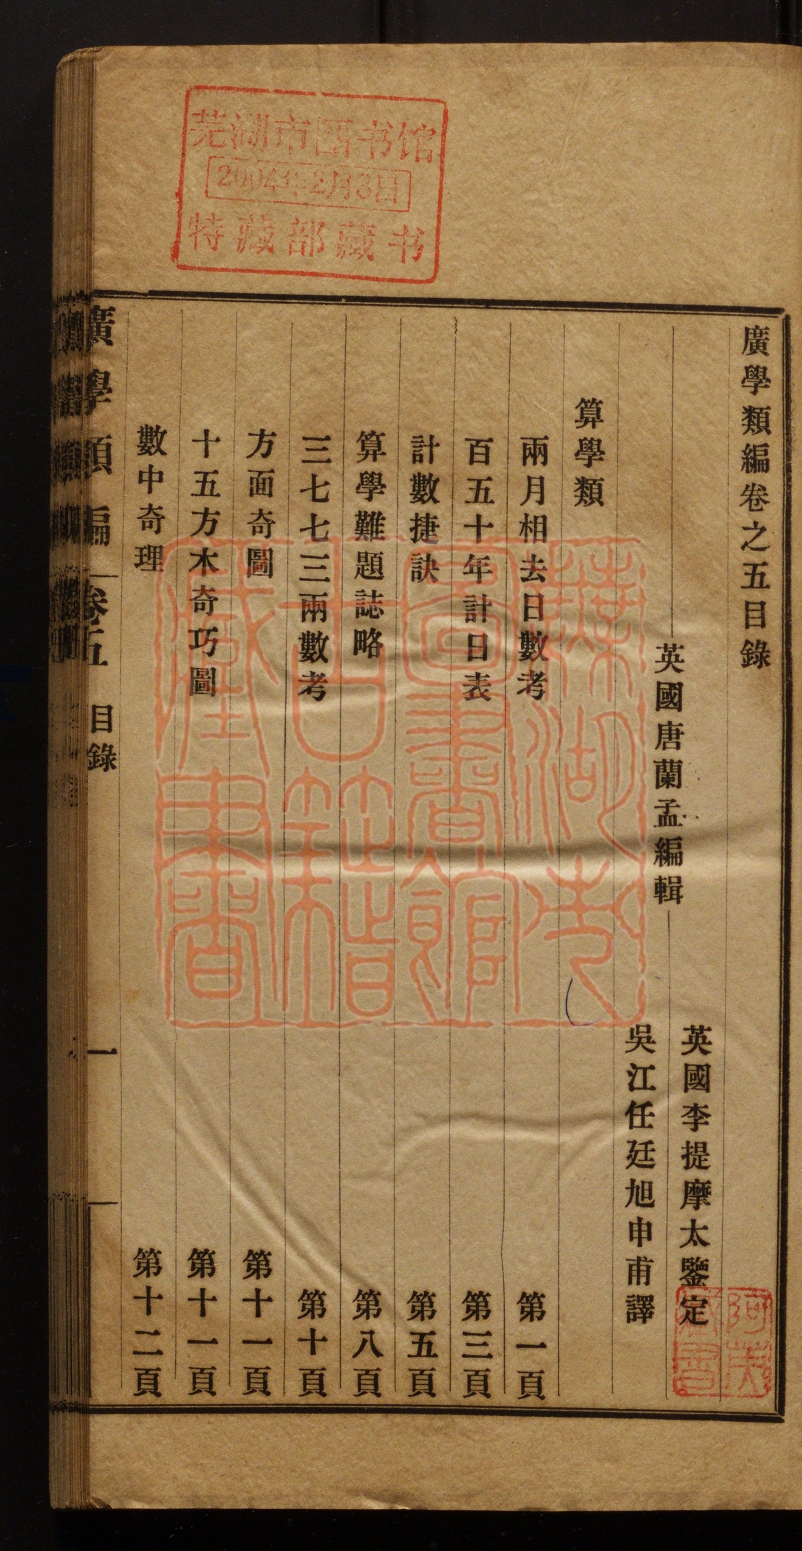 芜湖市图书馆
2004年2月3日
特藏部藏书
廣學類編卷之五目錄
英國李提摩太鑒定
英國唐蘭孟編輯
吳江任廷旭申甫譯
算學類
兩月相去日數考 第一頁
百五十年計日表 第三頁
計數捷訣 第五頁
算學難題誌略 第八頁
三七七三兩數考 第十頁
方面奇圖 第十一頁
十五方木奇巧圖 第十一頁
數中奇理 第十二頁
廣學類編 卷五 目錄 一
蕪湖市圖書館古籍藏書